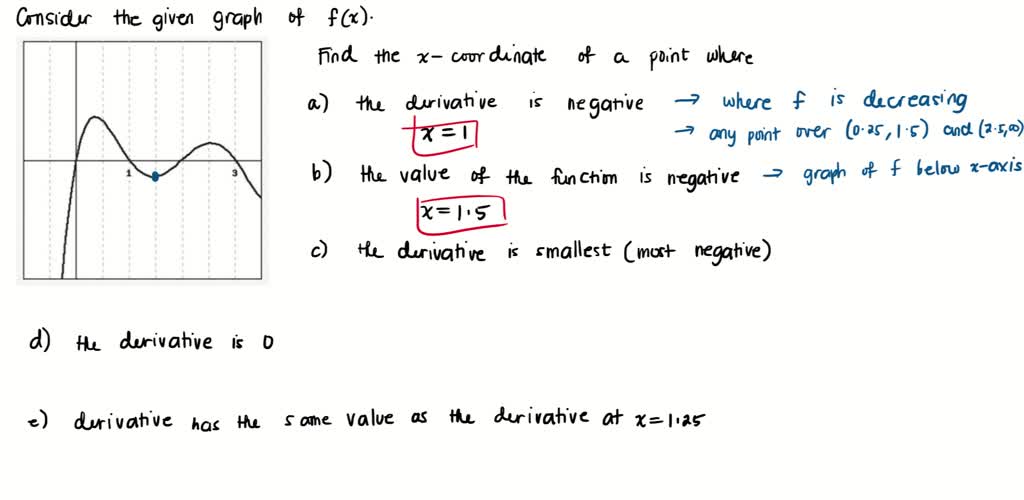 Consider the given graph of f(x).
Find the x-coordinate of a point where
a) the derivative is negative → where f is decreasing
x = 1 → any point over (0.25, 1.5) and (2.5, ∞)
1 3
b) the value of the function is negative → graph of f below x-axis
x = 1.5
c) the derivative is smallest (most negative)
d) the derivative is 0
e) derivative has the same value as the derivative at x = 1.25